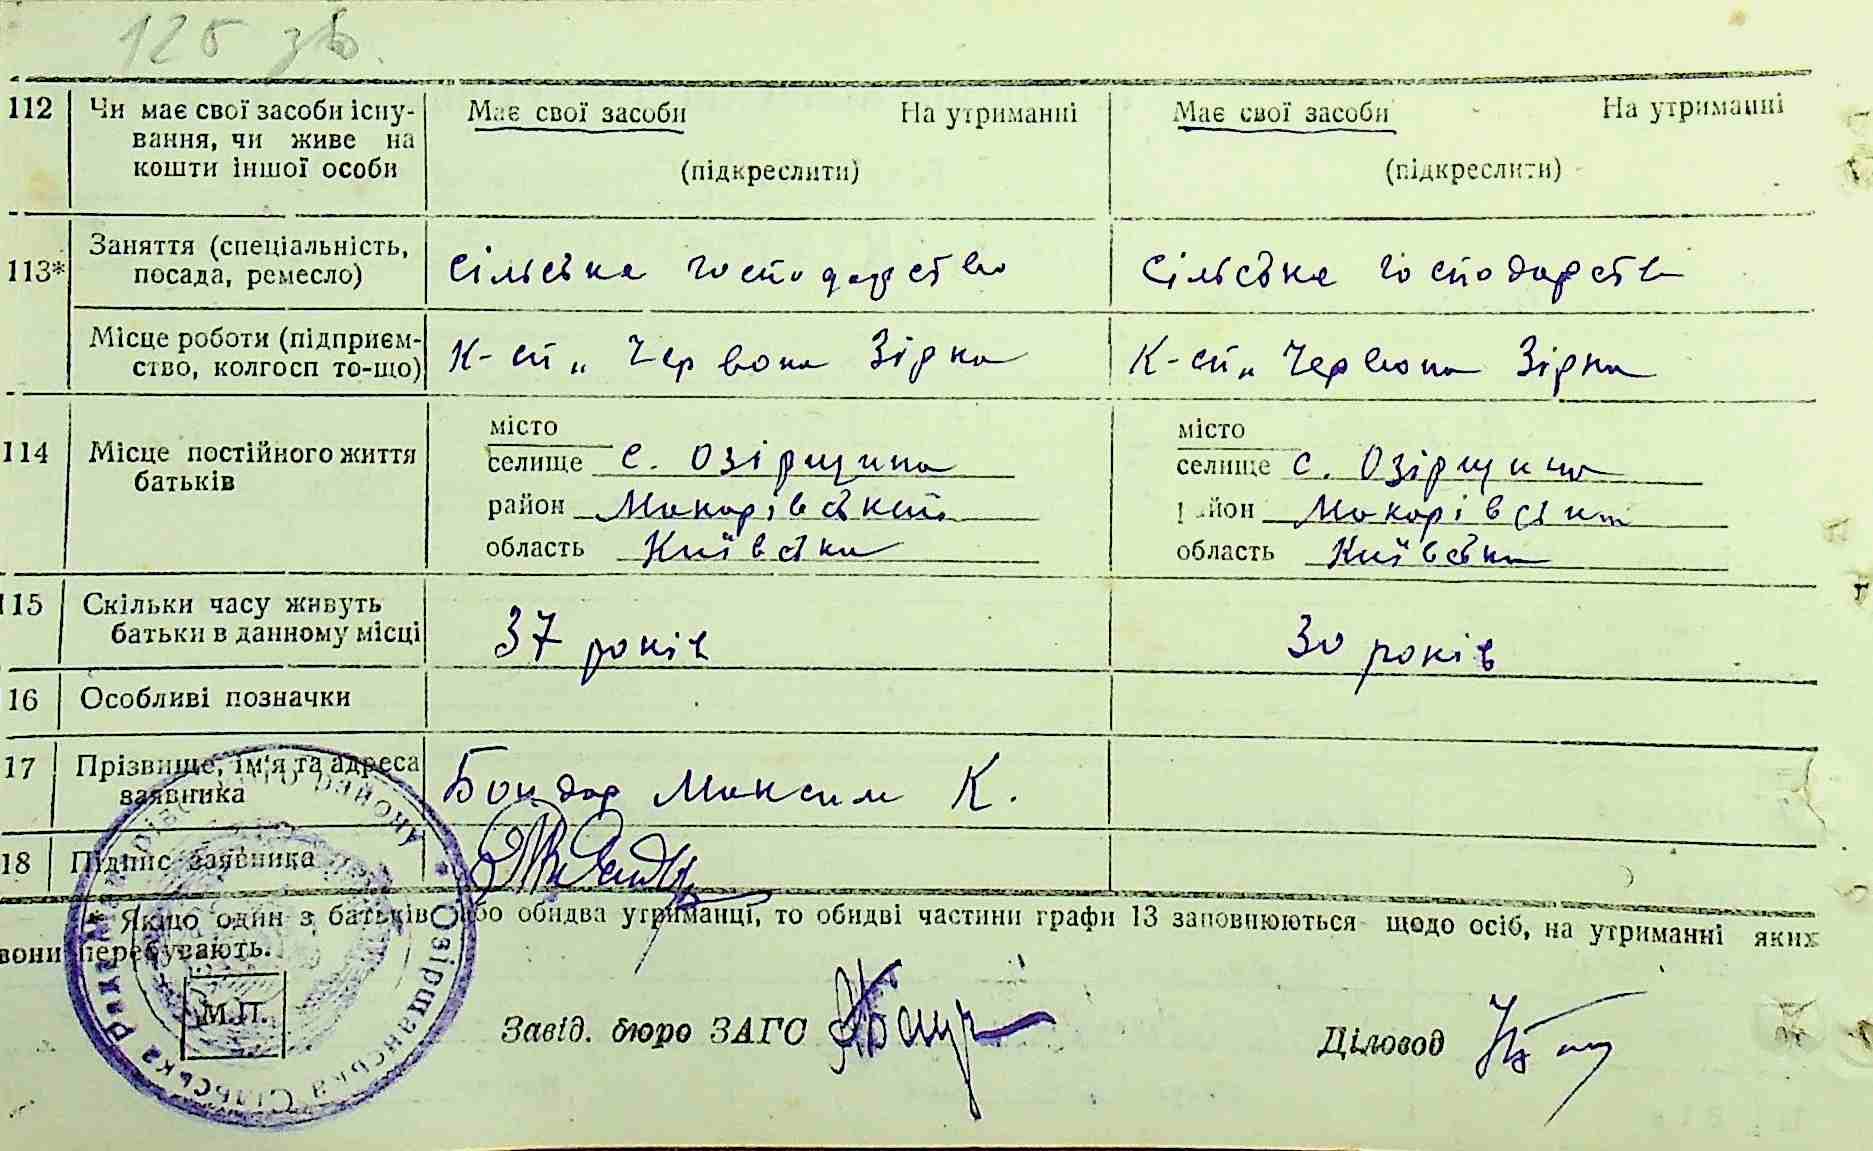 125 зв.
112 Чи має свої засоби існу- Має свої засоби На утриманні Має свої засоби На утриманні
вання, чи живе на
кошти іншої особи (підкреслити) (підкреслити)
113* Заняття (спеціальність, сільське господарство сільське господарство
посада, ремесло)
Місце роботи (підприєм- К-сп „Червона Зірка К-сп „Червона Зірка
ство, колгосп то-що)
місто місто
114 Місце постійного життя селище с. Озірщина селище с. Озірщина
батьків район Макарівський район Макарівський
область Київська область Київська
115 Скільки часу живуть 37 років 30 років
батьки в данному місці
16 Особливі позначки
17 Прізвище, ім'я та адреса Бондар Максим К.
заявника
18 Підпис заявника
Якщо один з батьків або обидва утриманці, то обидві частини графи 13 заповнюються щодо осіб, на утриманні яких
вони перебувають.
М.П.
Завід. бюро ЗАГС Діловод
Озірщанська Сільська Рада району